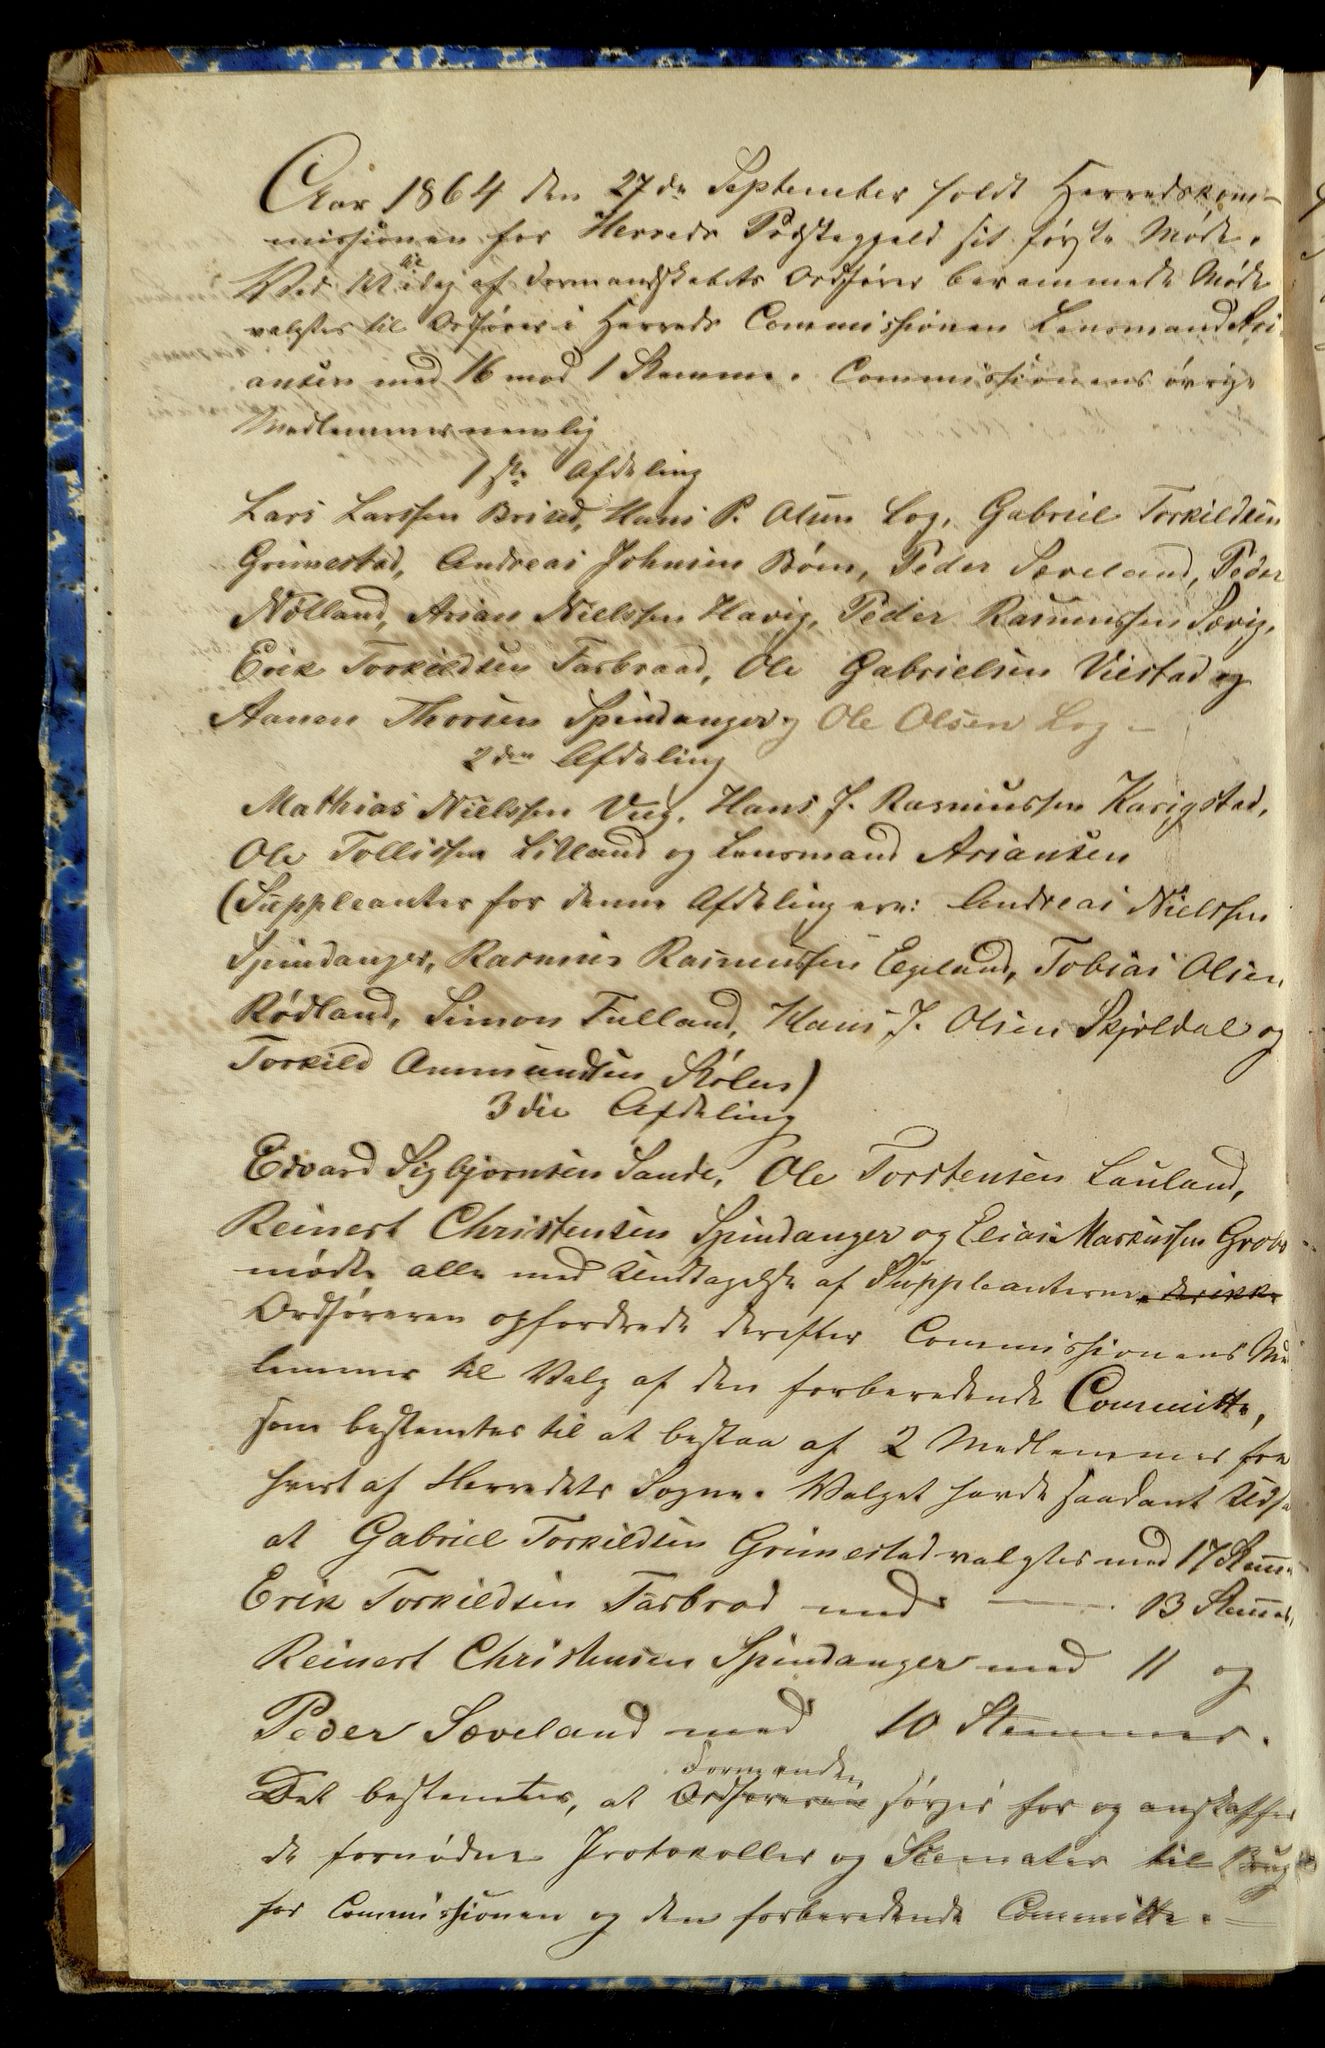 Aar 1864 den 27de September holdt Herredskom-
missionen for Herreds Præstegjeld sit første Møde.
Ved det til idag af Formandskabets Ordfører berammede Møde
valgtes til Ordfører i Herreds Commissionen Lensmand Ari
ansen med 16 mod 1 Stemme. Commissionens øvrige
Medlemmer nemlig
1ste Afdeling
Lars Larssen Briseid, Hans P. Olsen Log, Gabriel Torkildsen
Grimestad, Andreas Johnsen Bøen, Peder Sæveland, Peder
Nolland, Arian Nielssen Havig, Peder Rasmussen Sævig,
Erik Torkildsen Farbraad, Ole Gabrielsen Viestad og
Aanen Thorsen Spindanger og Ole Olsen Log –
2den Afdeling
Mathias Nielssen Vieg, Hans J. Rasmussen Karigstad,
Ole Tollissen Litland og Lensmand Ariansen
(Suppleanter for denne Afdeling ere: Andreas Nielssen
Spindanger, Rasmus Rasmussen Egeland, Tobias Olsen
Rødland, Simon Fulland, Hans J. Olsen Skjoldal og
Torkild Ammundsen Stølen)
3die Afdeling
Edvard Sigbjørnsen Sande, Ole Torstensen Lauland,
Reinert Christensen Spindanger og Elias Markussen Grobs
mødte alle med Undtagelse af Suppleanterne, der ikke
Ordføreren opfordrede derefter Commissionens Med
lemmer til Valg af den forberedende Committe,
som bestemtes til at bestaa af 2 Medlemmer fra
hvert af Herredets Sogne. Valget havde saadant Udfa
at Gabriel Torkildsen Grimestad valgtes med 17 Stemm
Erik Torkildsen Farbrod med — 13 Stemmer,
Reinert Christensen Spindanger med 11 og
Peder Sæveland med 10 Stemmer.
Formanden
Det bestemtes, at Ordføreren sørger for og anskaffer
de fornødne Protokoller og Skemater til Brug
for Commissionen og den forberedende Committe. =